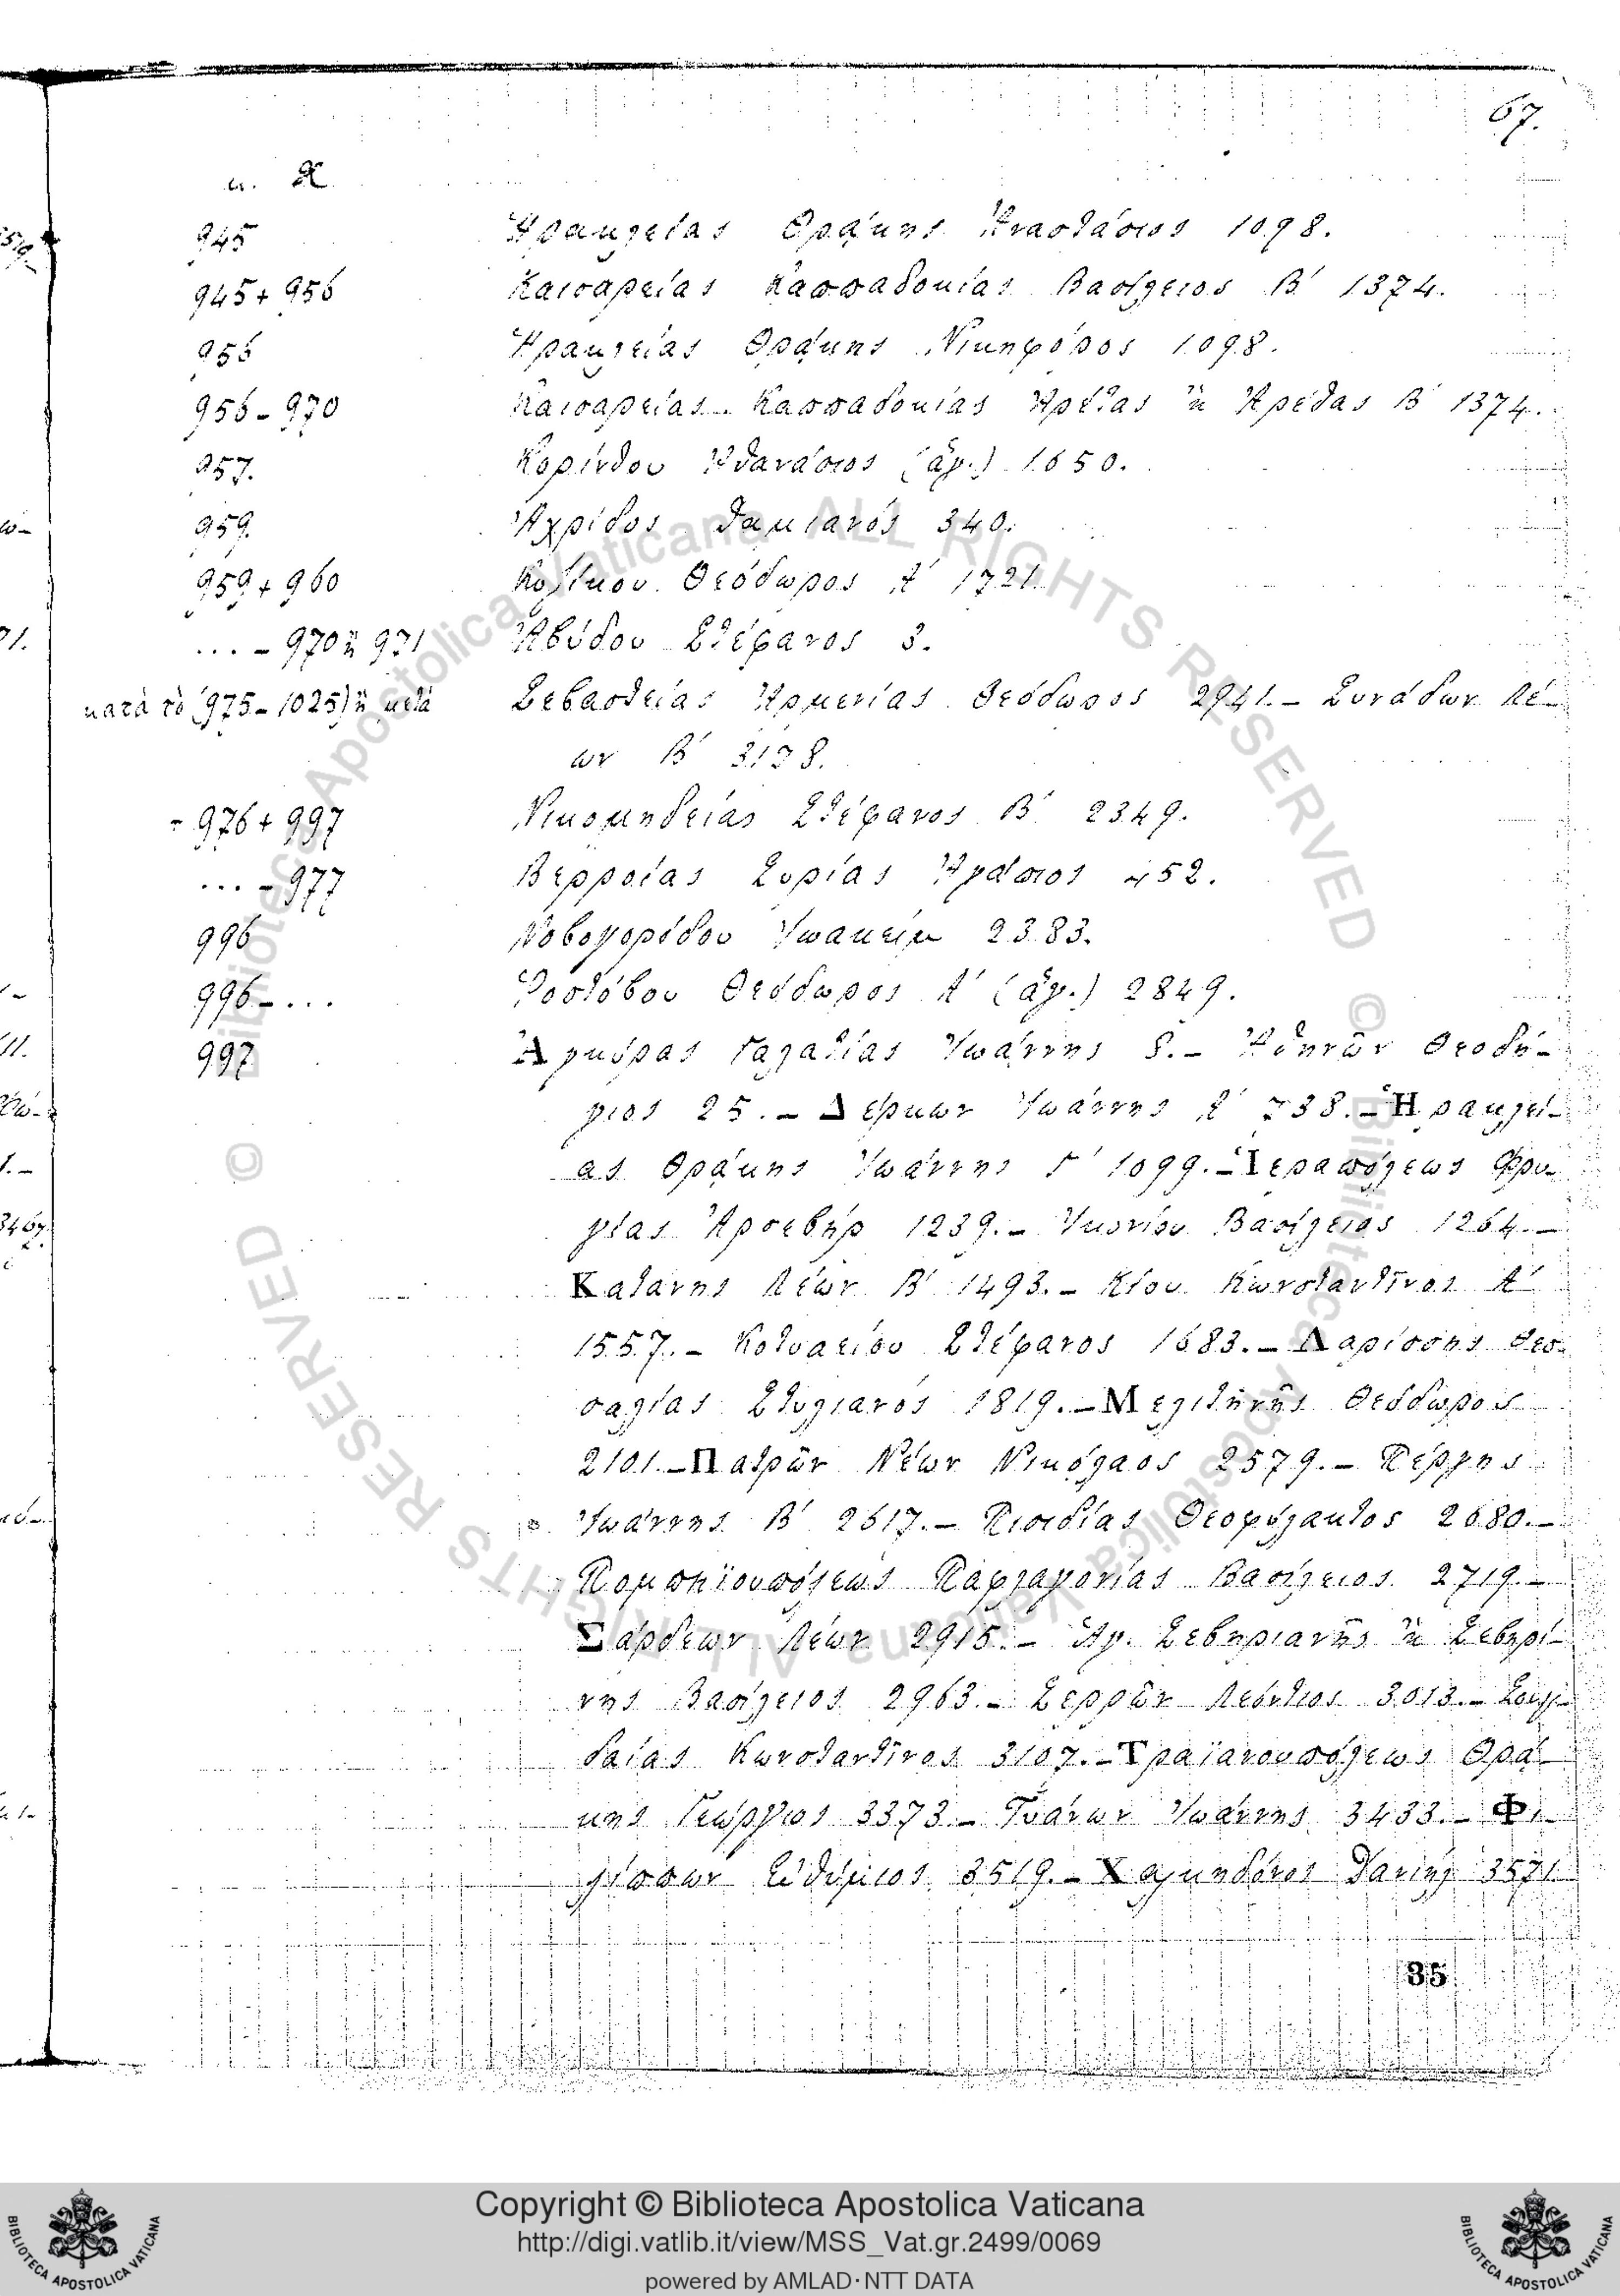 67.
μ. Χ
945 Ἡρακλείας Θρᾴκης Ἀναστάσιος 1098.
945+956 Καισαρείας Καππαδοκίας Βασίλειος Β΄ 1374.
956 Ἡρακλείας Θρᾴκης Νικηφόρος 1098.
956-970 Καισαρείας Καππαδοκίας Ἀρέτας ἢ Ἀρέθας Β΄ 1374.
957. Κορίνθου Ἀθανάσιος (ἅγ.) 1650.
959. Ἀχρίδος Δαμιανός 340.
959+960 Κυζίκου Θεόδωρος Α΄ 1721.
... - 970 ἢ 971 Ἀβύδου Στέφανος 3.
κατὰ τὸ (975-1025) ἢ μετὰ Σεβαστείας Ἀρμενίας Θεόδωρος 2941.- Συνάδων Λέ-
ων Β΄ 3138.
- 976+997 Νικομηδείας Στέφανος Β΄ 2349.
... - 977 Βερροίας Συρίας Ἀγάπιος 452.
996 Νοβογορόδου Ἰωακείμ 2383.
996-... Ῥοστόβου Θεόδωρος Α΄ (ἅγ.) 2849.
997 Ἀγκύρας Γαλατίας Ἰωάννης 8.- Ἀθηνῶν Θεοδή-
γιος 25.- Δέρκων Ἰωάννης Α΄ 738.- Ἡρακλεί-
ας Θρᾴκης Ἰωάννης Γ΄ 1099.- Ἱεραπόλεως Φρυ-
γίας Ἀρσεβήρ 1239.- Ἰκονίου Βασίλειος 1264.-
Κατάνης Λέων Β΄ 1493.- Κίου Κωνσταντῖνος Α΄
1557.- Κοτυαείου Στέφανος 1683.- Λαρίσσης Θεσ-
σαλίας Στυλιανός 1819.- Μελιτηνῆς Θεόδωρος
2101.- Πατρῶν Νέων Νικόλαος 2579.- Πέργης
Ἰωάννης Β΄ 2617.- Πισιδίας Θεοφύλακτος 2680.-
Πομπηϊουπόλεως Παφλαγονίας Βασίλειος 2719.-
Σάρδεων Λέων 2915.- Ἁγ. Σεβηριανῆς ἢ Σεβηρί-
νης Βασίλειος 2963.- Σερρῶν Λεόντιος 3013.- Σουγ-
δαίας Κωνσταντῖνος 3107.- Τραϊανουπόλεως Θρᾴ-
κης Γεώργιος 3373.- Τυάνων Ἰωάννης 3433.- Φι-
λίππων Εὐθύμιος 3519.- Χαλκηδόνος Δανιήλ 3571.
35
© Biblioteca Apostolica Vaticana ALL RIGHTS RESERVED
© Biblioteca Apostolica Vaticana ALL RIGHTS RESERVED
Copyright © Biblioteca Apostolica Vaticana
http://digi.vatlib.it/view/MSS_Vat.gr.2499/0069
powered by AMLAD·NTT DATA
BIBLIOTECA APOSTOLICA VATICANA
BIBLIOTECA APOSTOLICA VATICANA